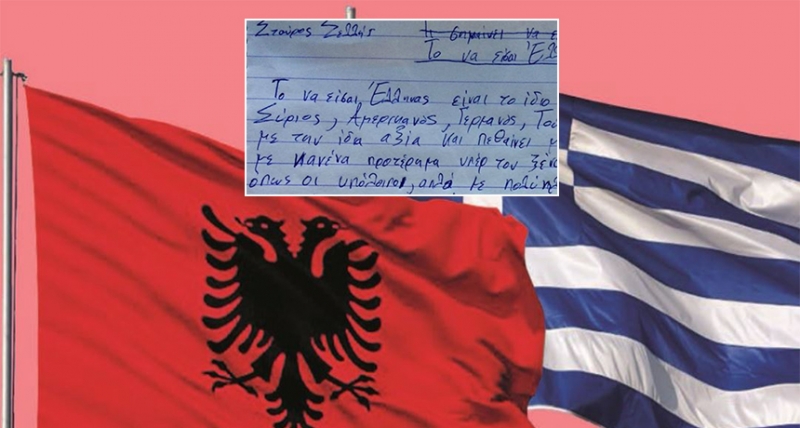 Σταύρος τι σημαίνει να
Το να είσαι Έλλ
Το να είσαι Έλληνας είναι το ίδιο
Σύριος, Γερμανός, Του
με την ίδια αξία και πεθαίνει
με κανένα προτέραμα υπέρ του
όπως οι υπόλοιποι, αλλά με